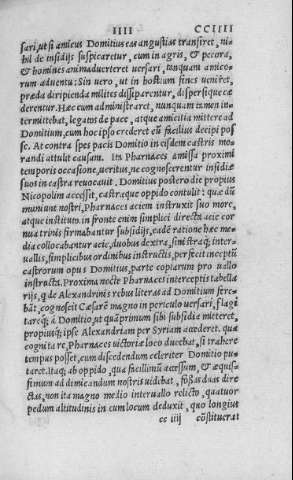 IIII CCIIII
sari, ut si amicus Domitius eas angustias transiret, ni⸗
hil de insidijs suspicaretur, cum in agris, & pecora,
& homines animaduerteret uersari, tanquam amico⸗
rum aduentu: Sin uero, ut in hostium fines ueniret,
præda diripienda milites dissiparentur, dispersiq; cæ
derentur. Hæc cum administraret, nunquam tamen in⸗
termittebat, legatos de pace, atque amicitia mittere ad
Domitium, cum hoc ipso crederet eū facilius decipi pos
se. At contra spes pacis Domitio in eisdem castris mo⸗
randi attulit causam. Ita Pharnaces amissa proximi
temporis occasione, ueritus, ne cognoscerentur insidiæ
suos in castra reuocauit. Domitius postero die propius
Nicopolim accessit, castraq; oppido contulit: quæ dū
muniunt nostri, Pharnaces aciem instruxit suo more,
atque instituto. in fronte enim simplici directa acie cor
nua trinis firmabantur subsidijs, eadē ratione hæc me⸗
dia collocabantur acie, duobus dextra, sinistraq; inter⸗
uallis, simplicibus ordinibus instructis, perfecit inceptū
castrorum opus Domitius, parte copiarum pro uallo
instructa. Proxima nocte Pharnaces interceptis tabella
rijs, q de Alexandrinis rebus literas ad Domitium fere⸗
bāt, cognoscit Cæsarē magno in periculo uersari, flagi
tareq; à Domitio, ut quāprimum sibi subsidia mitteret,
propiusq; ipse Alexandriam per Syriam accederet. qua
cognita re, Pharnaces uictoriæ loco ducebat, si trahere
tempus posset, cum discedendum celeriter Domitio pu⸗
taret. Itaq; ab oppido, qua facillimū accessum, & æquis⸗
simum ad dimicandum nostris uidebat, fossas duas dire
ctas, non ita magno medio interuallo relicto, quatuor
pedum altitudinis in eum locum deduxit, quo longius
cc iiij cōstituerat